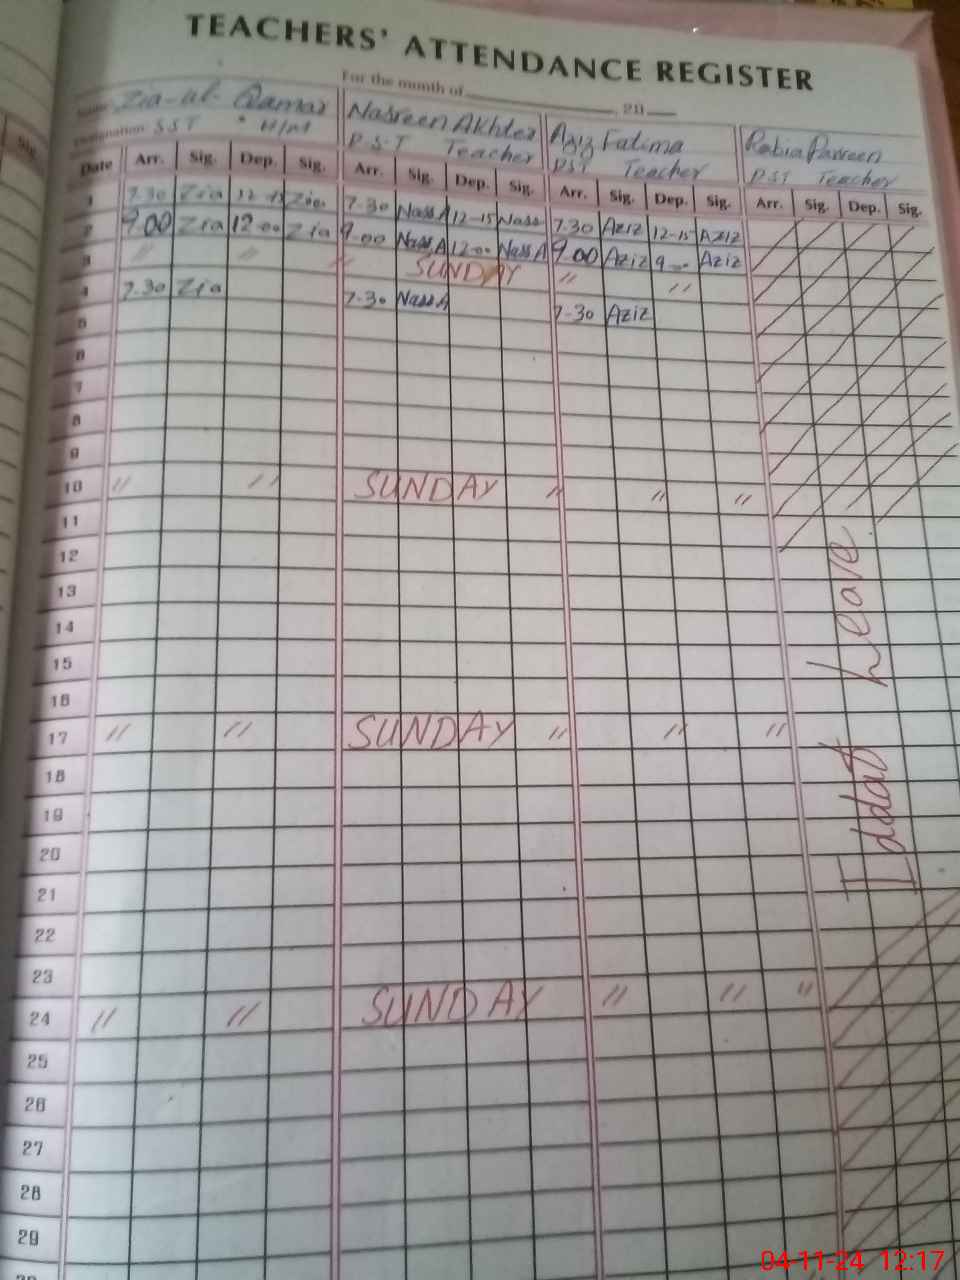 TEACHERS' ATTENDANCE REGISTER
For the month of 20
Name Zia-ul-Qamar Nasreen Akhter Aziz Fatima Rabia Parveen
Designation SST H/M P.S.T Teacher PST Teacher P.S.T Teacher
Date Arr. Sig. Dep. Sig. Arr. Sig. Dep. Sig. Arr. Sig. Dep. Sig. Arr. Sig. Dep. Sig.
1 7.30 Zia 12-15 Zia 7-30 Nass A 12-15 Nass 7.30 Aziz 12-15 AZIZ
2 9.00 Zia 12-00 Zia 9-00 Nass A 12-00 Nass A 9.00 Aziz 9-00 Aziz
3 " " " SUNDAY " "
4 7.30 Zia 7-30 Nass A 7-30 Aziz
5
6
7
8
9
10 " " SUNDAY " " "
11
12
13
14
15
16
17 " " SUNDAY " " "
18
19
20
21
22
23
24 " " SUNDAY " " "
25
26
27
28
29
Iddat Leave
04-11-24 12:17